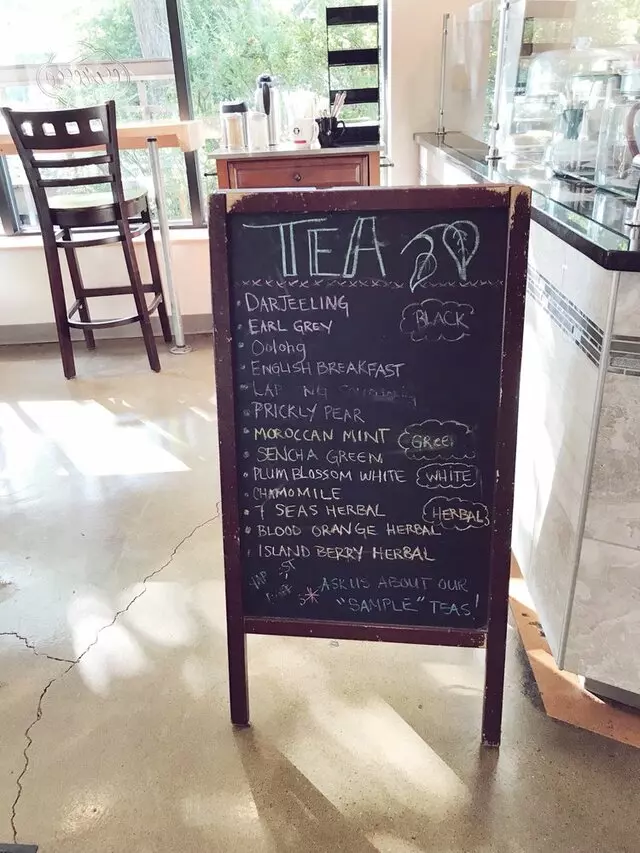 TEA
DARJEELING
BLACK
EARL GREY
Oolong
ENGLISH BREAKFAST
LAP NG
PRICKLY PEAR
MOROCCAN MINT
GREEN
SENCHA GREEN
PLUM BLOSSOM WHITE
WHITE
CHAMOMILE
7 SEAS HERBAL
HERBAL
BLOOD ORANGE HERBAL
ISLAND BERRY HERBAL
ASK US ABOUT OUR
"SAMPLE" TEAS!